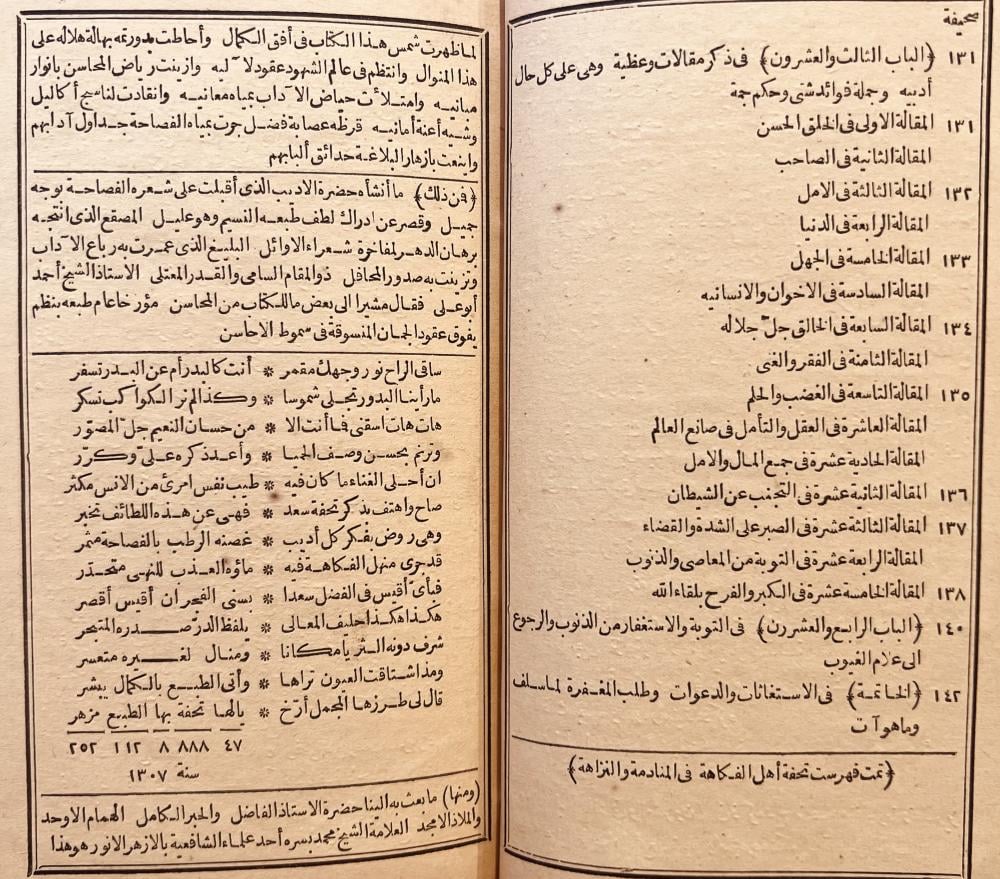 صحيفة
١٣١ ﴿الباب الثالث والعشرون﴾ فى ذكر مقالات وعظية وهى على كل حال
أدبيه وجملة فوائد شتى وحكم جمة
١٣١ المقالة الاولى فى الخلق الحسن
المقالة الثانية فى الصاحب
١٣٢ المقالة الثالثة فى الامل
المقالة الرابعة فى الدنيا
١٣٣ المقالة الخامسة فى الجهل
المقالة السادسة فى الاخوان والانسانيه
١٣٤ المقالة السابعة فى الخالق جلّ جلاله
المقالة الثامنة فى الفقر والغنى
١٣٥ المقالة التاسعة فى الغضب والحلم
المقالة العاشرة فى العقل والتأمل فى صانع العالم
المقالة الحادية عشرة فى جمع المال والامل
١٣٦ المقالة الثانية عشرة فى التجنب عن الشيطان
١٣٧ المقالة الثالثة عشرة فى الصبر على الشدة والقضاء
المقالة الرابعة عشرة فى التوبة من المعاصى والذنوب
١٣٨ المقالة الخامسة عشرة فى الكبر والفرح بلقاء الله
١٤٠ ﴿الباب الرابع والعشررن﴾ فى التوبة والاستغفار من الذنوب والرجوع
الى علام الغيوب
١٤٢ ﴿الخاتمة﴾ فى الاستغاثات والدعوات وطلب المغفرة لما سلف
وما هو آت
﴿تمت فهرست تحفة أهل الفكاهة فى المنادمة والنزاهة﴾
لما ظهرت شمس هذا الكتاب فى أفق الكمال وأحاطت بدورتمه بهالة هلاله على
هذا المنوال وانتظم فى عالم الشهود عقود لآليه وازينت رياض المحاسن بانوار
مبانيه وامتلأت حياض الآداب بمياه معانيه وانقادت لناسج أكاليل
وشيه أعنة أمانيه قرظه عصابة فضل جرت بمياه الفصاحة جداول آدابهم
واينعت بازهار البلاغة حدائق ألبابهم
﴿فن ذلك﴾ ما أنشأه حضرة الاديب الذى أقبلت على شعره الفصاحة بوجه
جميل وقصر عن ادراك لطف طبعه النسيم وهو عليل المصقع الذى انتجبه
برهان الدهر لمفاخرة شعراء الاوائل البليغ الذى عمرت به رباع الآداب
وتزينت به صدور المحافل ذو المقام السامى والقدر المعتلى الاستاذ الشيخ أحمد
أبو على فقال مشيرا الى بعض ما للكتاب من المحاسن مؤرخا عام طبعه بنظم
يفوق عقود الجمان المنسوقة فى سموط الاحاسن
ساقى الراح نور وجهك مقمر * أنت كالبدر أم عن البدر تسفر
ما رأينا البدور تجلى شموسا * وكذا لم نر الكواكب تسكر
هات هات اسقنى فما أنت الا * من حسان النعيم جلّ المصوّر
وترنم بحسن وصف الحميا * وأعد ذكره علىّ وكرّر
ان أحلى الغناء ما كان فيه * طيب نفس امرئ من الانس مكثر
صاح واهتف بذكر تحفة سعد * فهى عن هذه اللطائف تخبر
وهى روض بفكر كل أديب * غصنه الرطب بالفصاحة مثمر
قد جرى منهل الفكاهة فيه * ماؤه العذب للنهى متحدّر
فبأىّ أقيس فى الفضل سعدا * بسنى الفجر ان أقيس أقصر
هكذا هكذا حليف المعالى * بلفظ الدرّ صدره المتبحر
شرف دونه الثريا مكانا * ومنال لغيره متعسر
ومذ اشتاقت العيون تراها * وأتى الطبع بالكمال يبشر
قال لى طرزها المجمل أرّخ * يالها تحفة بها الطبع مزهر
٤٧ ٨٨٨ ٨ ١١٢ ٢٥٢
سنة ١٣٠٧
(ومنها) ما بعث به الينا حضرة الاستاذ الفاضل والحبر الكامل الهمام الاوحد
والملاذ الامجد العلامة الشيخ محمد بسره أحد علماء الشافعية بالازهر الانور هو هذا